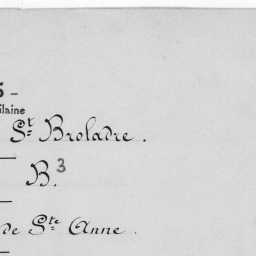 s -
ilaine
St Broladre.
B. 3
de Ste Anne.